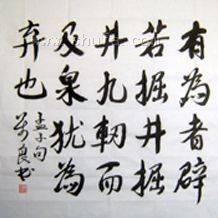 有為者辟
若掘井掘
井九軔而
及泉猶為
弃也
孟子句